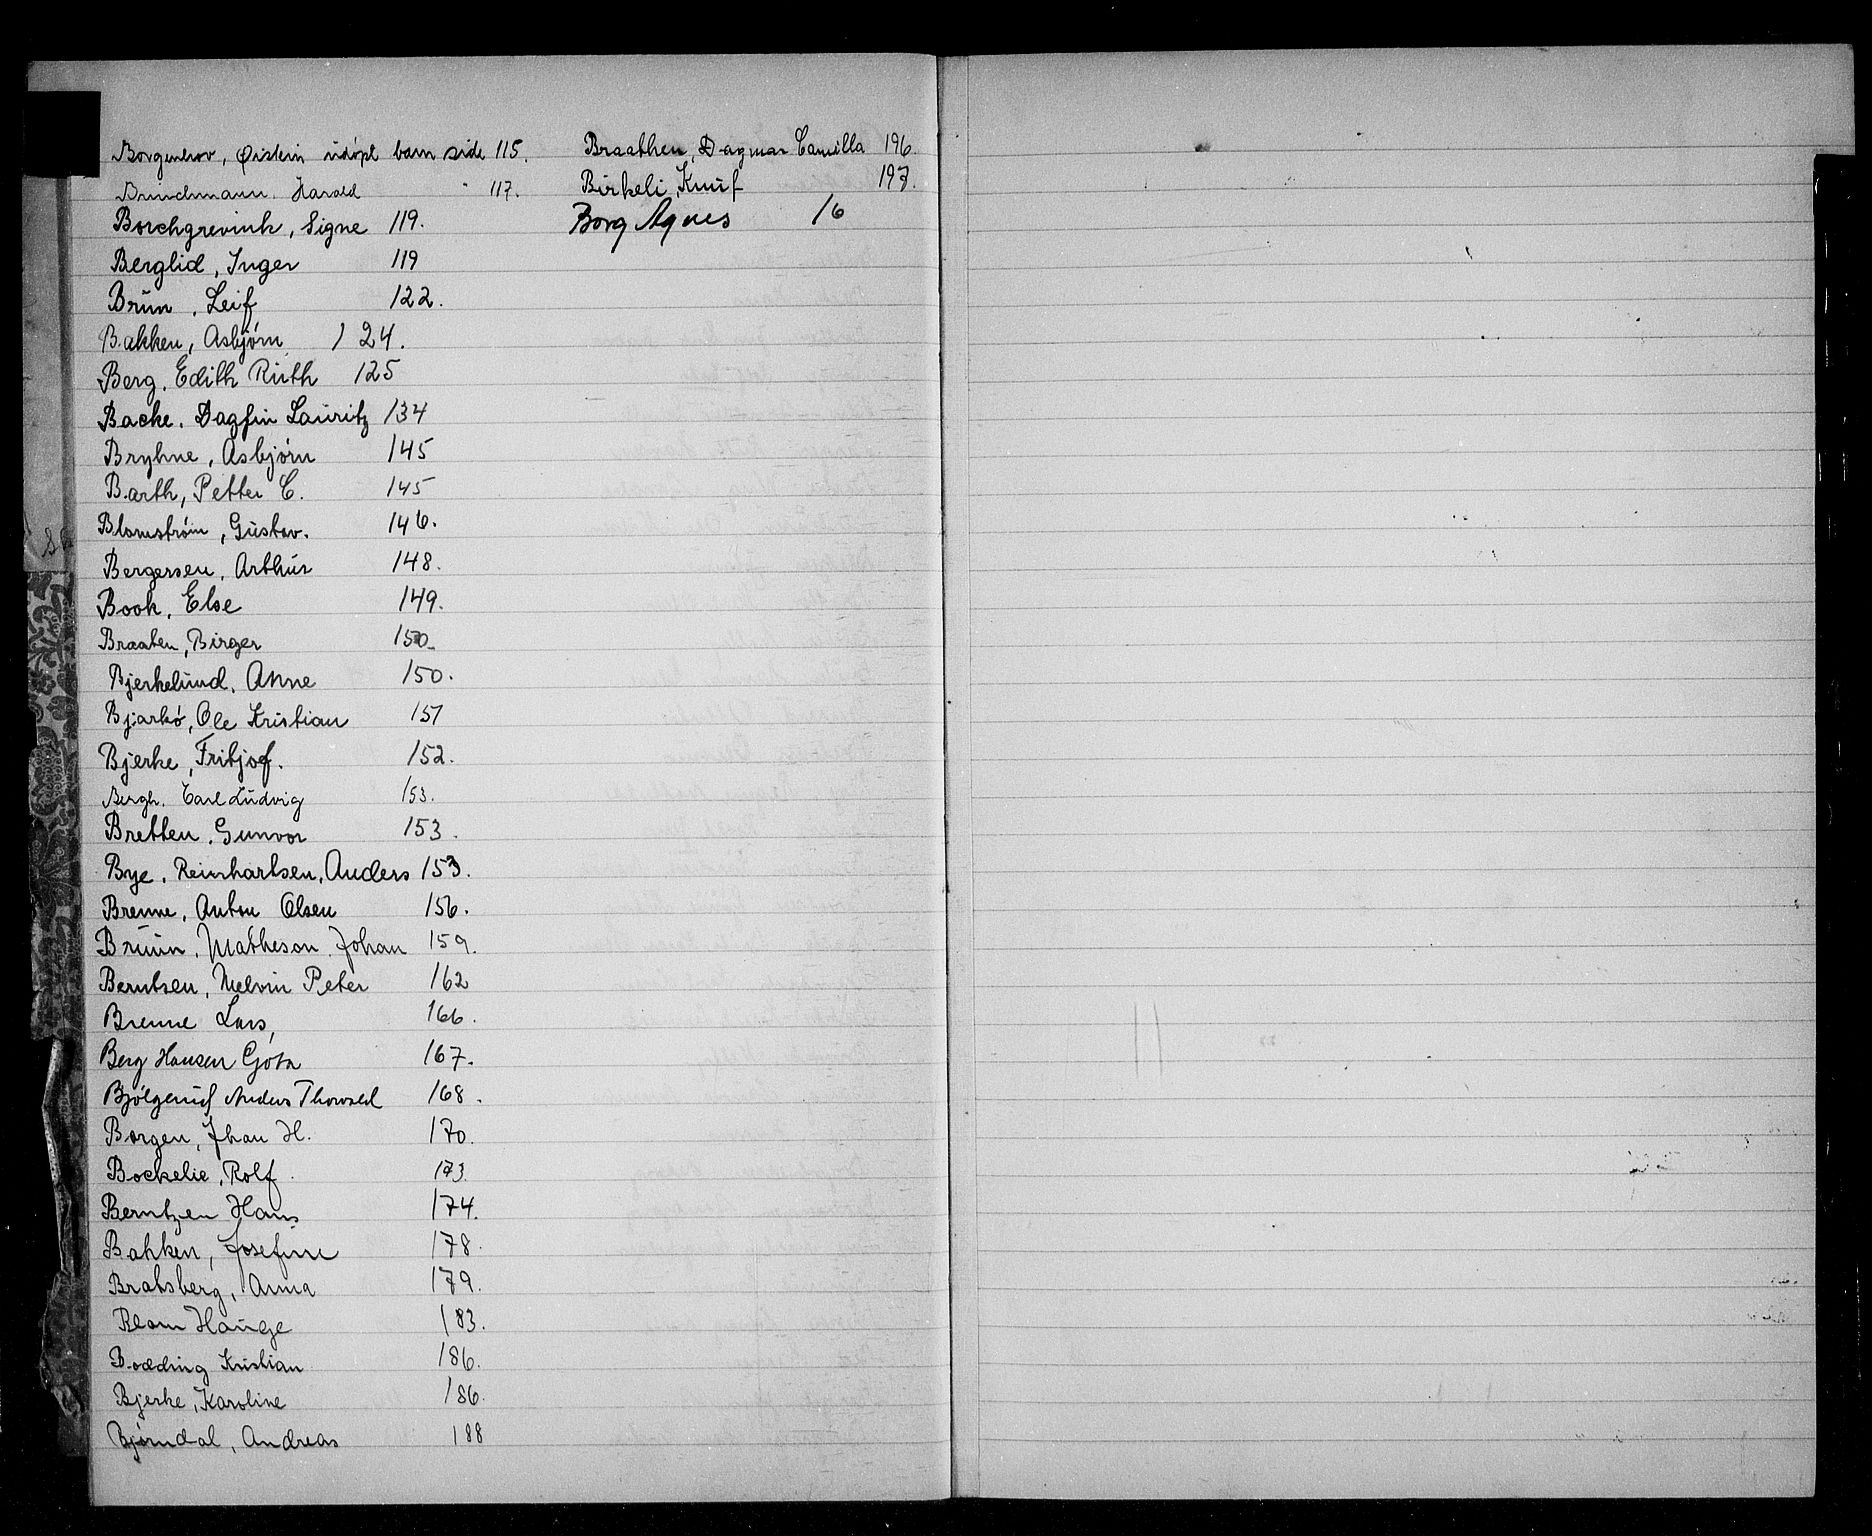 Borgenhov, Øistein udøpt barn side 115.
Brinchmann. Harald " 117.
Borchgrevink, Signe 119.
Berglid, Inger 119
Brun, Leif 122.
Bakken, Asbjørn 124.
Berg. Edith Ruth 125
Backe. Dagfin Lauritz 134
Bryhne, Asbjørn 145
Barth, Petter C. 145
Blomstrøm, Gustav. 146.
Bergersen, Arthur 148.
Book, Else 149.
Braaten, Birger 150.
Bjerkelund. Anne 150.
Bjarkó, Ole Kristian 151
Bjerke, Fritjof. 152.
Bergh. Carl Ludvig 153.
Bretten. Gunvor 153.
Bye. Reinhartsen, Anders 153.
Brenne, Anton Olsen 156.
Bruun, Matheson. Johan 159.
Berntsen, Melvin Peter 162
Brenne Lars, 166.
Berg Hansen Göta 167.
Anders 168.
Borgen, Jhan H. 170.
Bockelie, Rolf 173.
Berntzen Hans 174.
Bakken, Josefine 178.
Bratsberg, Anna 179.
Blom Hauge 183.
Bodding Kristian 186.
Bjerke, Karoline 186.
Bjørndal, Andreas 188
Braathen, Dagmar Camilla 196.
Birkeli, Knut 197.
Borg Agnes 16